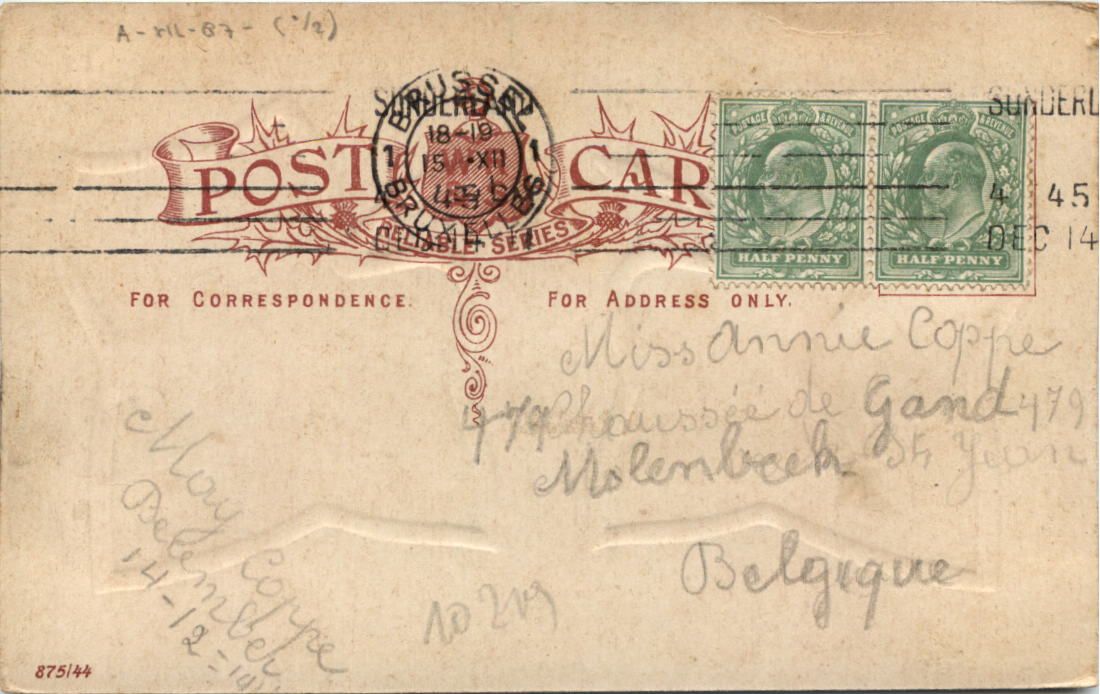 A-XII-87-(1/2)
SUNDERLAND
BRUSSEL
18-19
15 XII
1 1
BRUXELLES
SUNDERL
4 45
DEC 14
POST CAR
RELIABLE SERIES
POSTAGE & REVENUE
HALF PENNY
POSTAGE & REVENUE
HALF PENNY
FOR CORRESPONDENCE.
FOR ADDRESS ONLY.
Miss Annie Coppe
479 Chaussée de Gand 479
Molenbeek St Jean
Belgique
May Coppe
December
14-12-
10 219
875/44